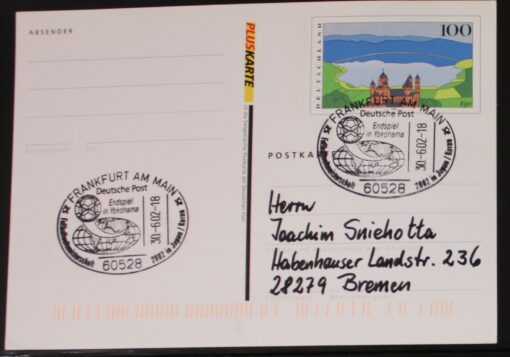 ABSENDER
PLUSKARTE
DEUTSCHLAND
100
Eifel
POSTKARTE
FRANKFURT AM MAIN
Deutsche Post
Endspiel
in Yokohama
30-6.02-18
60528
Fußballweltmeisterschaft 2002 in Japan / Korea
FRANKFURT AM MAIN
Deutsche Post
Endspiel
in Yokohama
30-6.02-18
60528
Fußballweltmeisterschaft 2002 in Japan / Korea
Herrn
Joachim Sniehotta
Habenhauser Landstr. 236
28279 Bremen